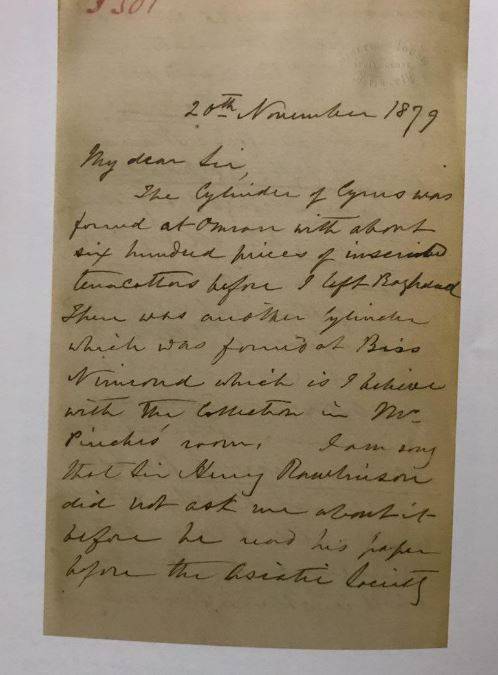 20th November 1879
My dear Sir,
The Cylinder of Cyrus was
found at Omran with about
six hundred pieces of inscribed
terracottas before I left Baghdad
There was another Cylinder
which was found at Birs
Nimroud which is I believe
with the Collection in Mr
Pinches' room. I am sorry
that Sir Henry Rawlinson
did not ask me about it
before he read his paper
before the Asiatic Society